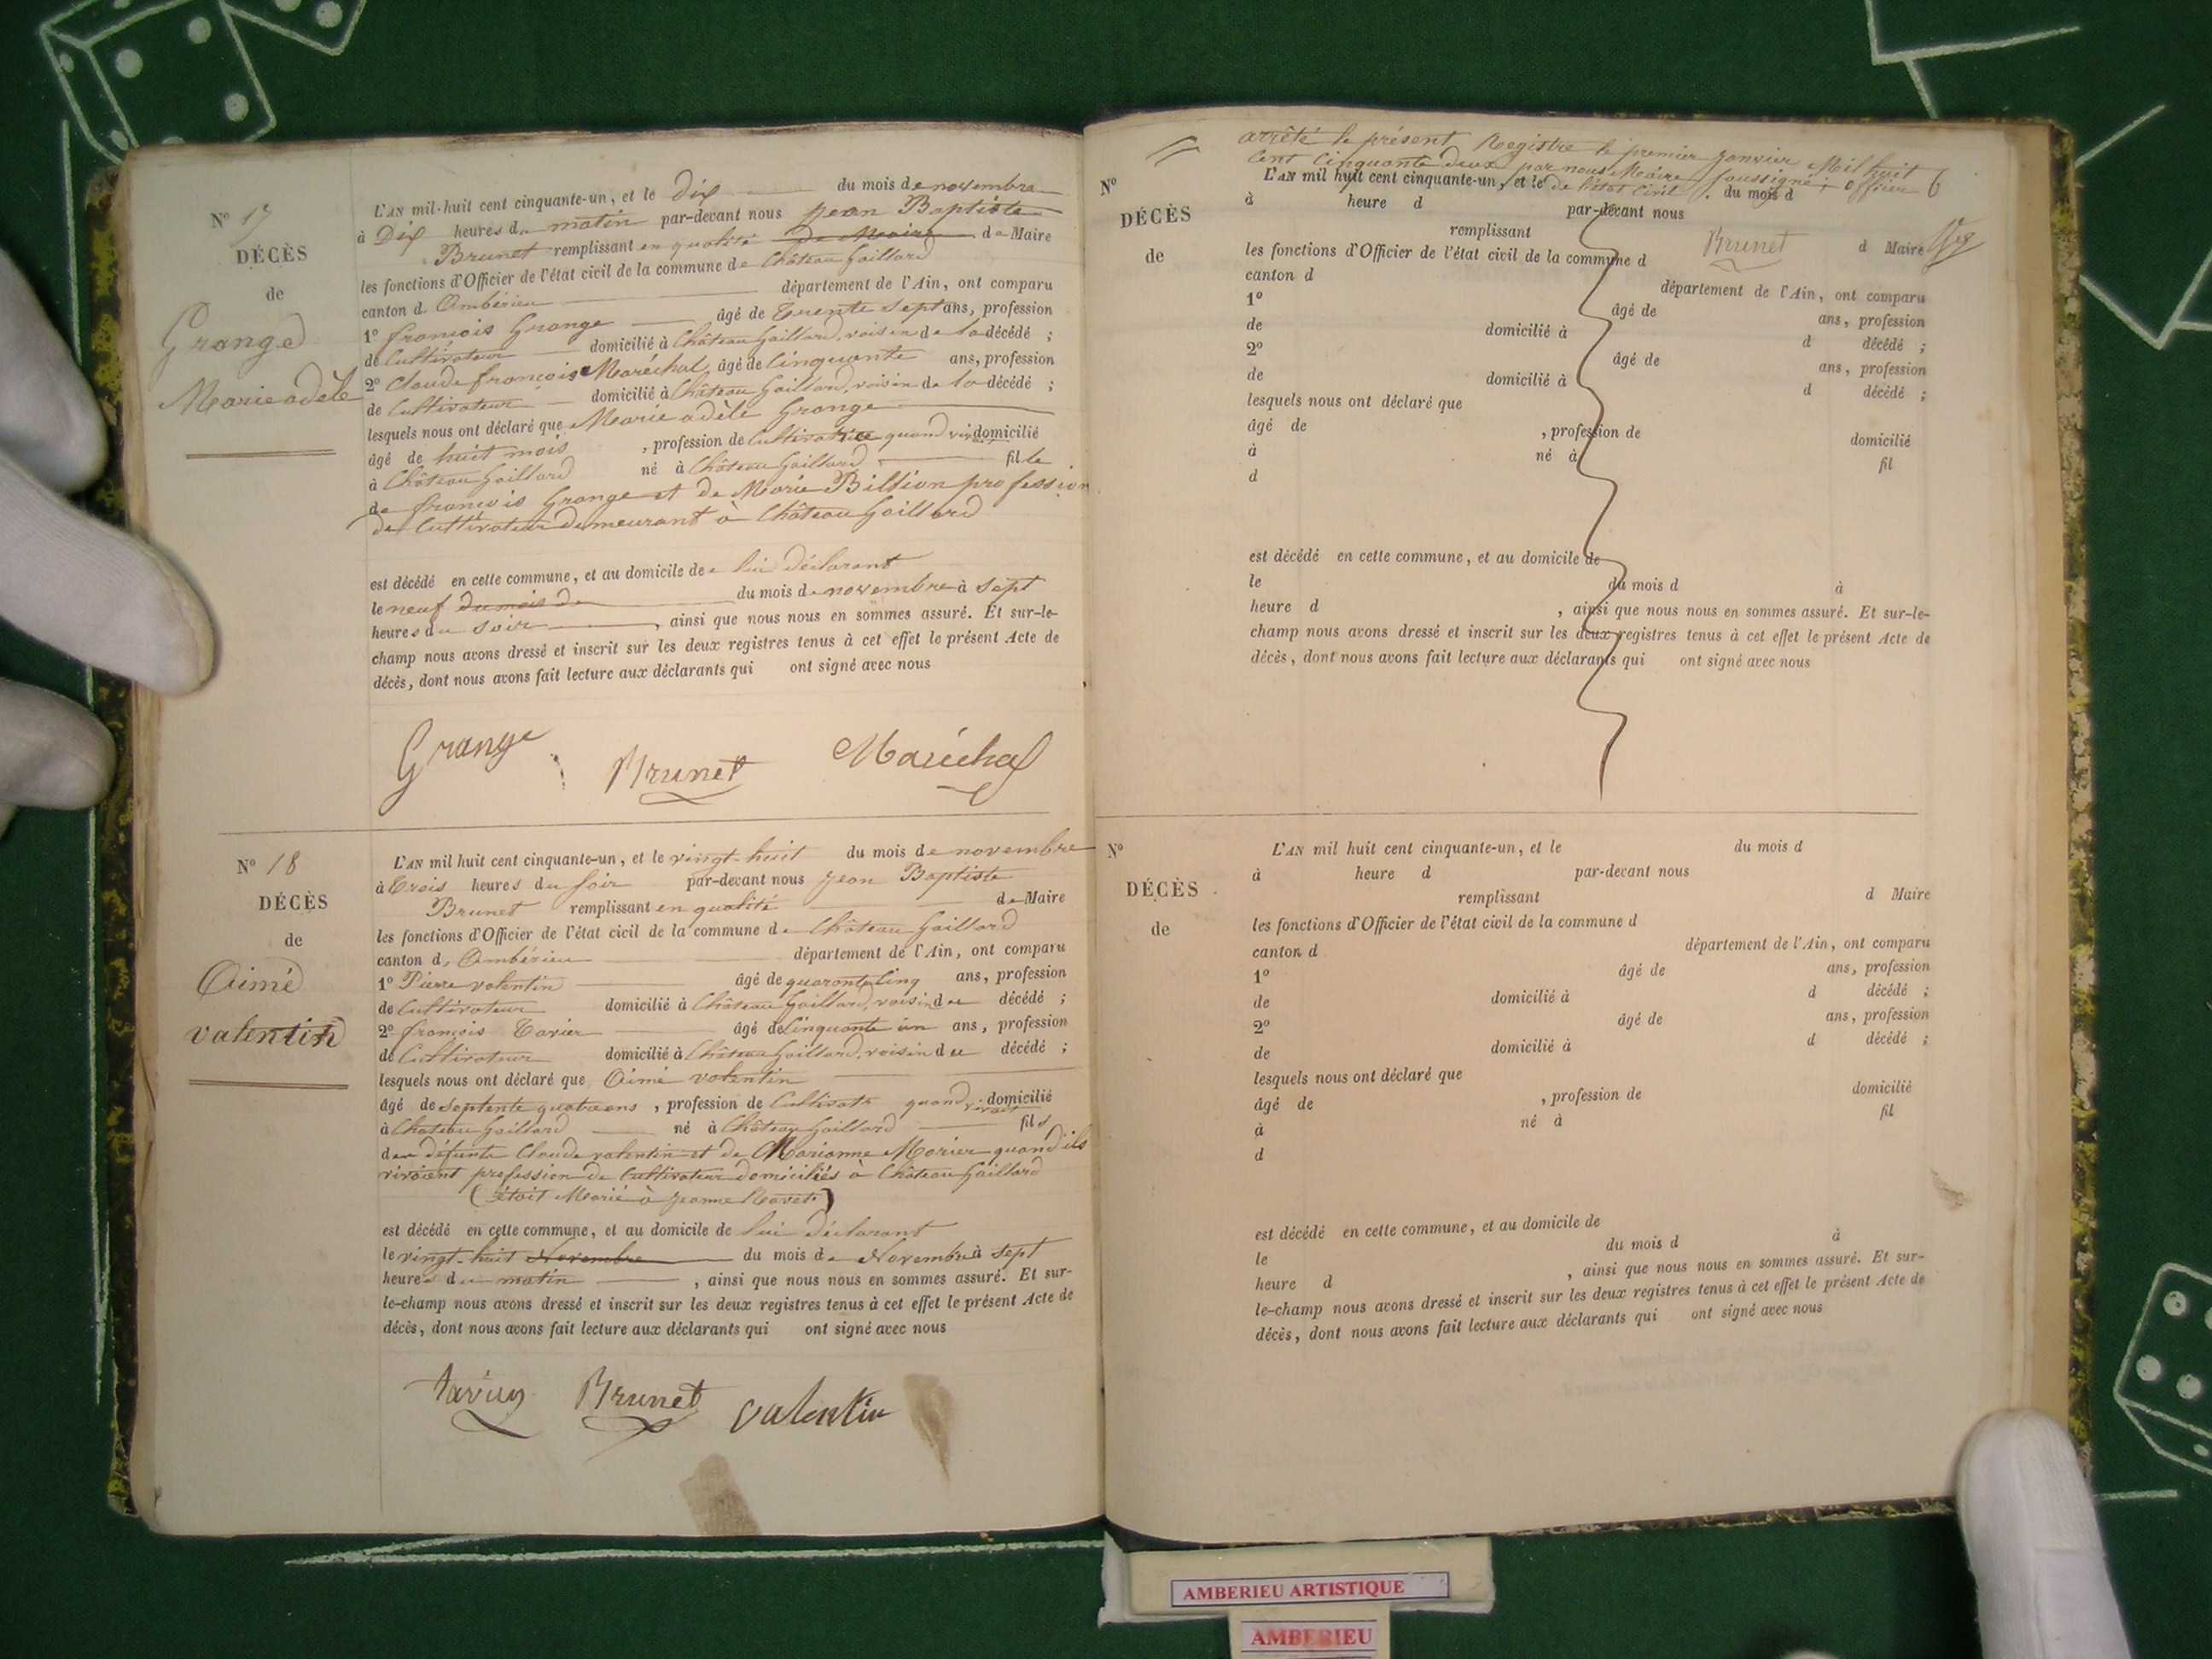 N° 17
DÉCÈS
de
Grange
Marie adèle
L'AN mil-huit cent cinquante-un, et le Dix du mois de novembre
à Dix heures du matin par-devant nous jean Baptiste
Brunet remplissant en qualité de Maire de Maire
les fonctions d'Officier de l'état civil de la commune de Château Gaillard
canton d. Ambérieu département de l'Ain, ont comparu
1° françois Grange âgé de Trente Sept ans, profession
de Cultivateur domicilié à Château Gaillard, voisin de la décédé ;
2° Claude françois Maréchal, âgé de Cinquante ans, profession
de Cultivateur domicilié à Château Gaillard, voisin de la décédé ;
lesquels nous ont déclaré que Marie adèle Grange
âgé de huit mois , profession de Cultivatrice quand vivait domicilié
à Château Gaillard né à Château Gaillard fille
de françois Grange et de Marie Billion profession
de Cultivateur demeurant à Château Gaillard
est décédé en cette commune, et au domicile de lui déclarant
le neuf du mois de du mois de novembre à sept
heures du soir , ainsi que nous nous en sommes assuré. Et sur-le-
champ nous avons dressé et inscrit sur les deux registres tenus à cet effet le présent Acte de
décès, dont nous avons fait lecture aux déclarants qui ont signé avec nous
Grange Brunet Maréchal
N° 18
DÉCÈS
de
Aimé
valentin
L'AN mil huit cent cinquante-un, et le vingt-huit du mois de novembre
à Trois heures du soir par-devant nous jean Baptiste
Brunet remplissant en qualité de Maire
les fonctions d'Officier de l'état civil de la commune de Château Gaillard
canton d. Ambérieu département de l'Ain, ont comparu
1° Pierre valentin âgé de quarante Cinq ans, profession
de Cultivateur domicilié à Château Gaillard, voisin du décédé ;
2° françois Tavier âgé de Cinquante un ans, profession
de Cultivateur domicilié à Château Gaillard, voisin du décédé ;
lesquels nous ont déclaré que Aimé valentin
âgé de septente quatre ans , profession de Cultivatr quand vivait domicilié
à Château Gaillard né à Château Gaillard fils
de défunts Claude valentin et de Marianne Morier quand ils
vivoient profession de Cultivateur domiciliés à Château Gaillard
( étoit Marié à jeanne Ravet )
est décédé en cette commune, et au domicile de lui déclarant
le vingt-huit Novembre du mois de Novembre à sept
heures du matin , ainsi que nous nous en sommes assuré. Et sur-
le-champ nous avons dressé et inscrit sur les deux registres tenus à cet effet le présent Acte de
décès, dont nous avons fait lecture aux déclarants qui ont signé avec nous
Brunet valentin
arrêté le présent Registre le premier janvier Mil huit
Cent Cinquante deux par nous Maire soussigné, officier
de l'état Civil.
Brunet
N°
DÉCÈS
de
L'AN mil huit cent cinquante-un, et le du mois d
à heure d par-devant nous
remplissant d Maire
les fonctions d'Officier de l'état civil de la commune d
canton d département de l'Ain, ont comparu
1° âgé de ans, profession
de domicilié à d décédé ;
2° âgé de ans, profession
de domicilié à d décédé ;
lesquels nous ont déclaré que
âgé de , profession de domicilié
à né à fil
d
est décédé en cette commune, et au domicile de
le du mois d à
heure d , ainsi que nous nous en sommes assuré. Et sur-le-
champ nous avons dressé et inscrit sur les deux registres tenus à cet effet le présent Acte de
décès, dont nous avons fait lecture aux déclarants qui ont signé avec nous
N°
DÉCÈS
de
L'AN mil huit cent cinquante-un, et le du mois d
à heure d par-devant nous
remplissant d Maire
les fonctions d'Officier de l'état civil de la commune d
canton d département de l'Ain, ont comparu
1° âgé de ans, profession
de domicilié à d décédé ;
2° âgé de ans, profession
de domicilié à d décédé ;
lesquels nous ont déclaré que
âgé de , profession de domicilié
à né à fil
d
est décédé en cette commune, et au domicile de
le du mois d à
heure d , ainsi que nous nous en sommes assuré. Et sur-
le-champ nous avons dressé et inscrit sur les deux registres tenus à cet effet le présent Acte de
décès, dont nous avons fait lecture aux déclarants qui ont signé avec nous
AMBERIEU ARTISTIQUE
AMBERIEU